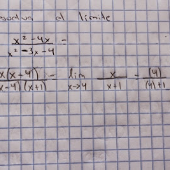 al límite
x² - 4x / x² - 3x - 4 =
x(x+4) / (x-4)(x+1) = lim x→4 x / x+1 = (4) / (4)+1